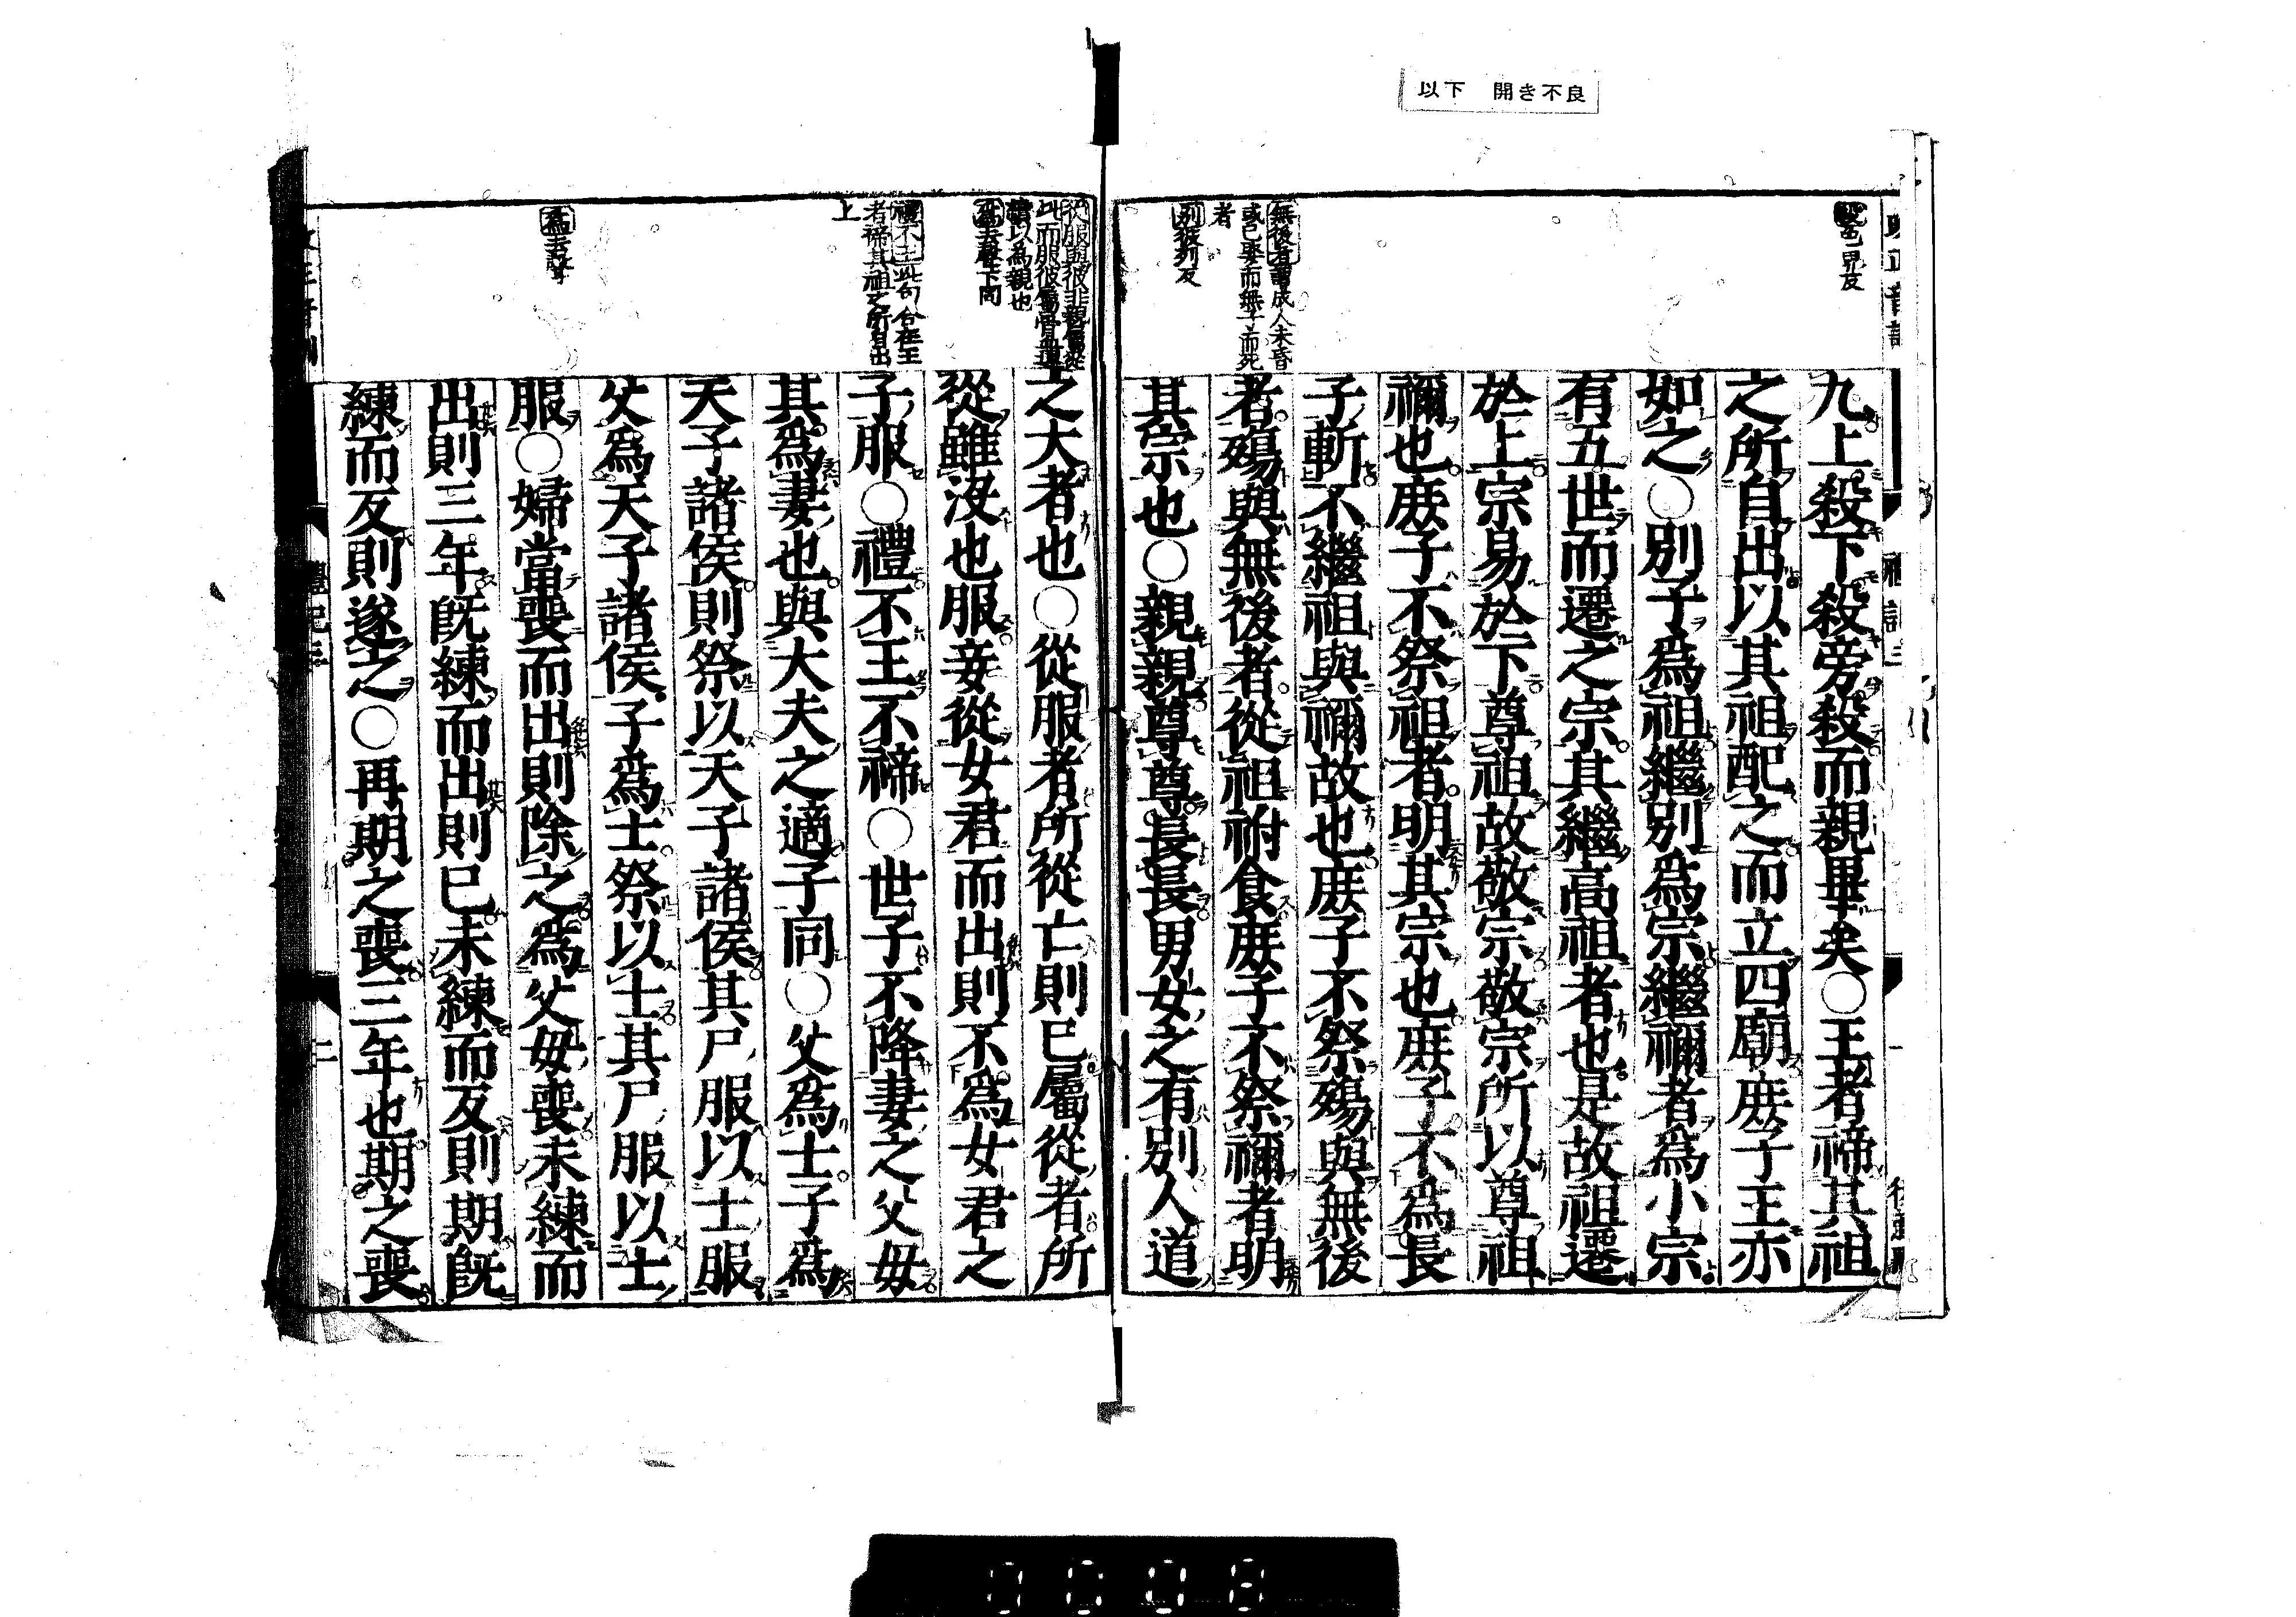 以下　開き不良
殺色界反
無後者謂成人未昏
或已娶而無子而死
者
別彼列反
九上殺下殺旁殺而親畢矣○王者禘其祖
之所自出以其祖配之而立四廟庶子王亦
如之○別子爲祖繼別爲宗繼禰者爲小宗
有五世而遷之宗其繼高祖者也是故祖遷
於上宗易於下尊祖故敬宗敬宗所以尊祖
禰也庶子不祭祖者明其宗也庶子不爲長
子斬不繼祖與禰故也庶子不祭殤與無後
者殤與無後者從祖祔食庶子不祭禰者明
其宗也○親親尊尊長長男女之有別人道
爲去聲下同
禮不王此句合在王
者禘其祖之所自出
上
爲去聲
之大者也○從服者所從亡則已屬從者所
從雖沒也服妾從女君而出則不爲女君之
子服○禮不王不禘○世子不降妻之父毋
其爲妻也與大夫之適子同○父爲士子爲
天子諸侯則祭以天子諸侯其尸服以士服
父爲天子諸侯子爲士祭以士其尸服以士
服○婦當喪而出則除之爲父毋喪未練而
出則三年旣練而出則已未練而反則期旣
練而反則遂之○再期之喪三年也期之喪
禮記三
二